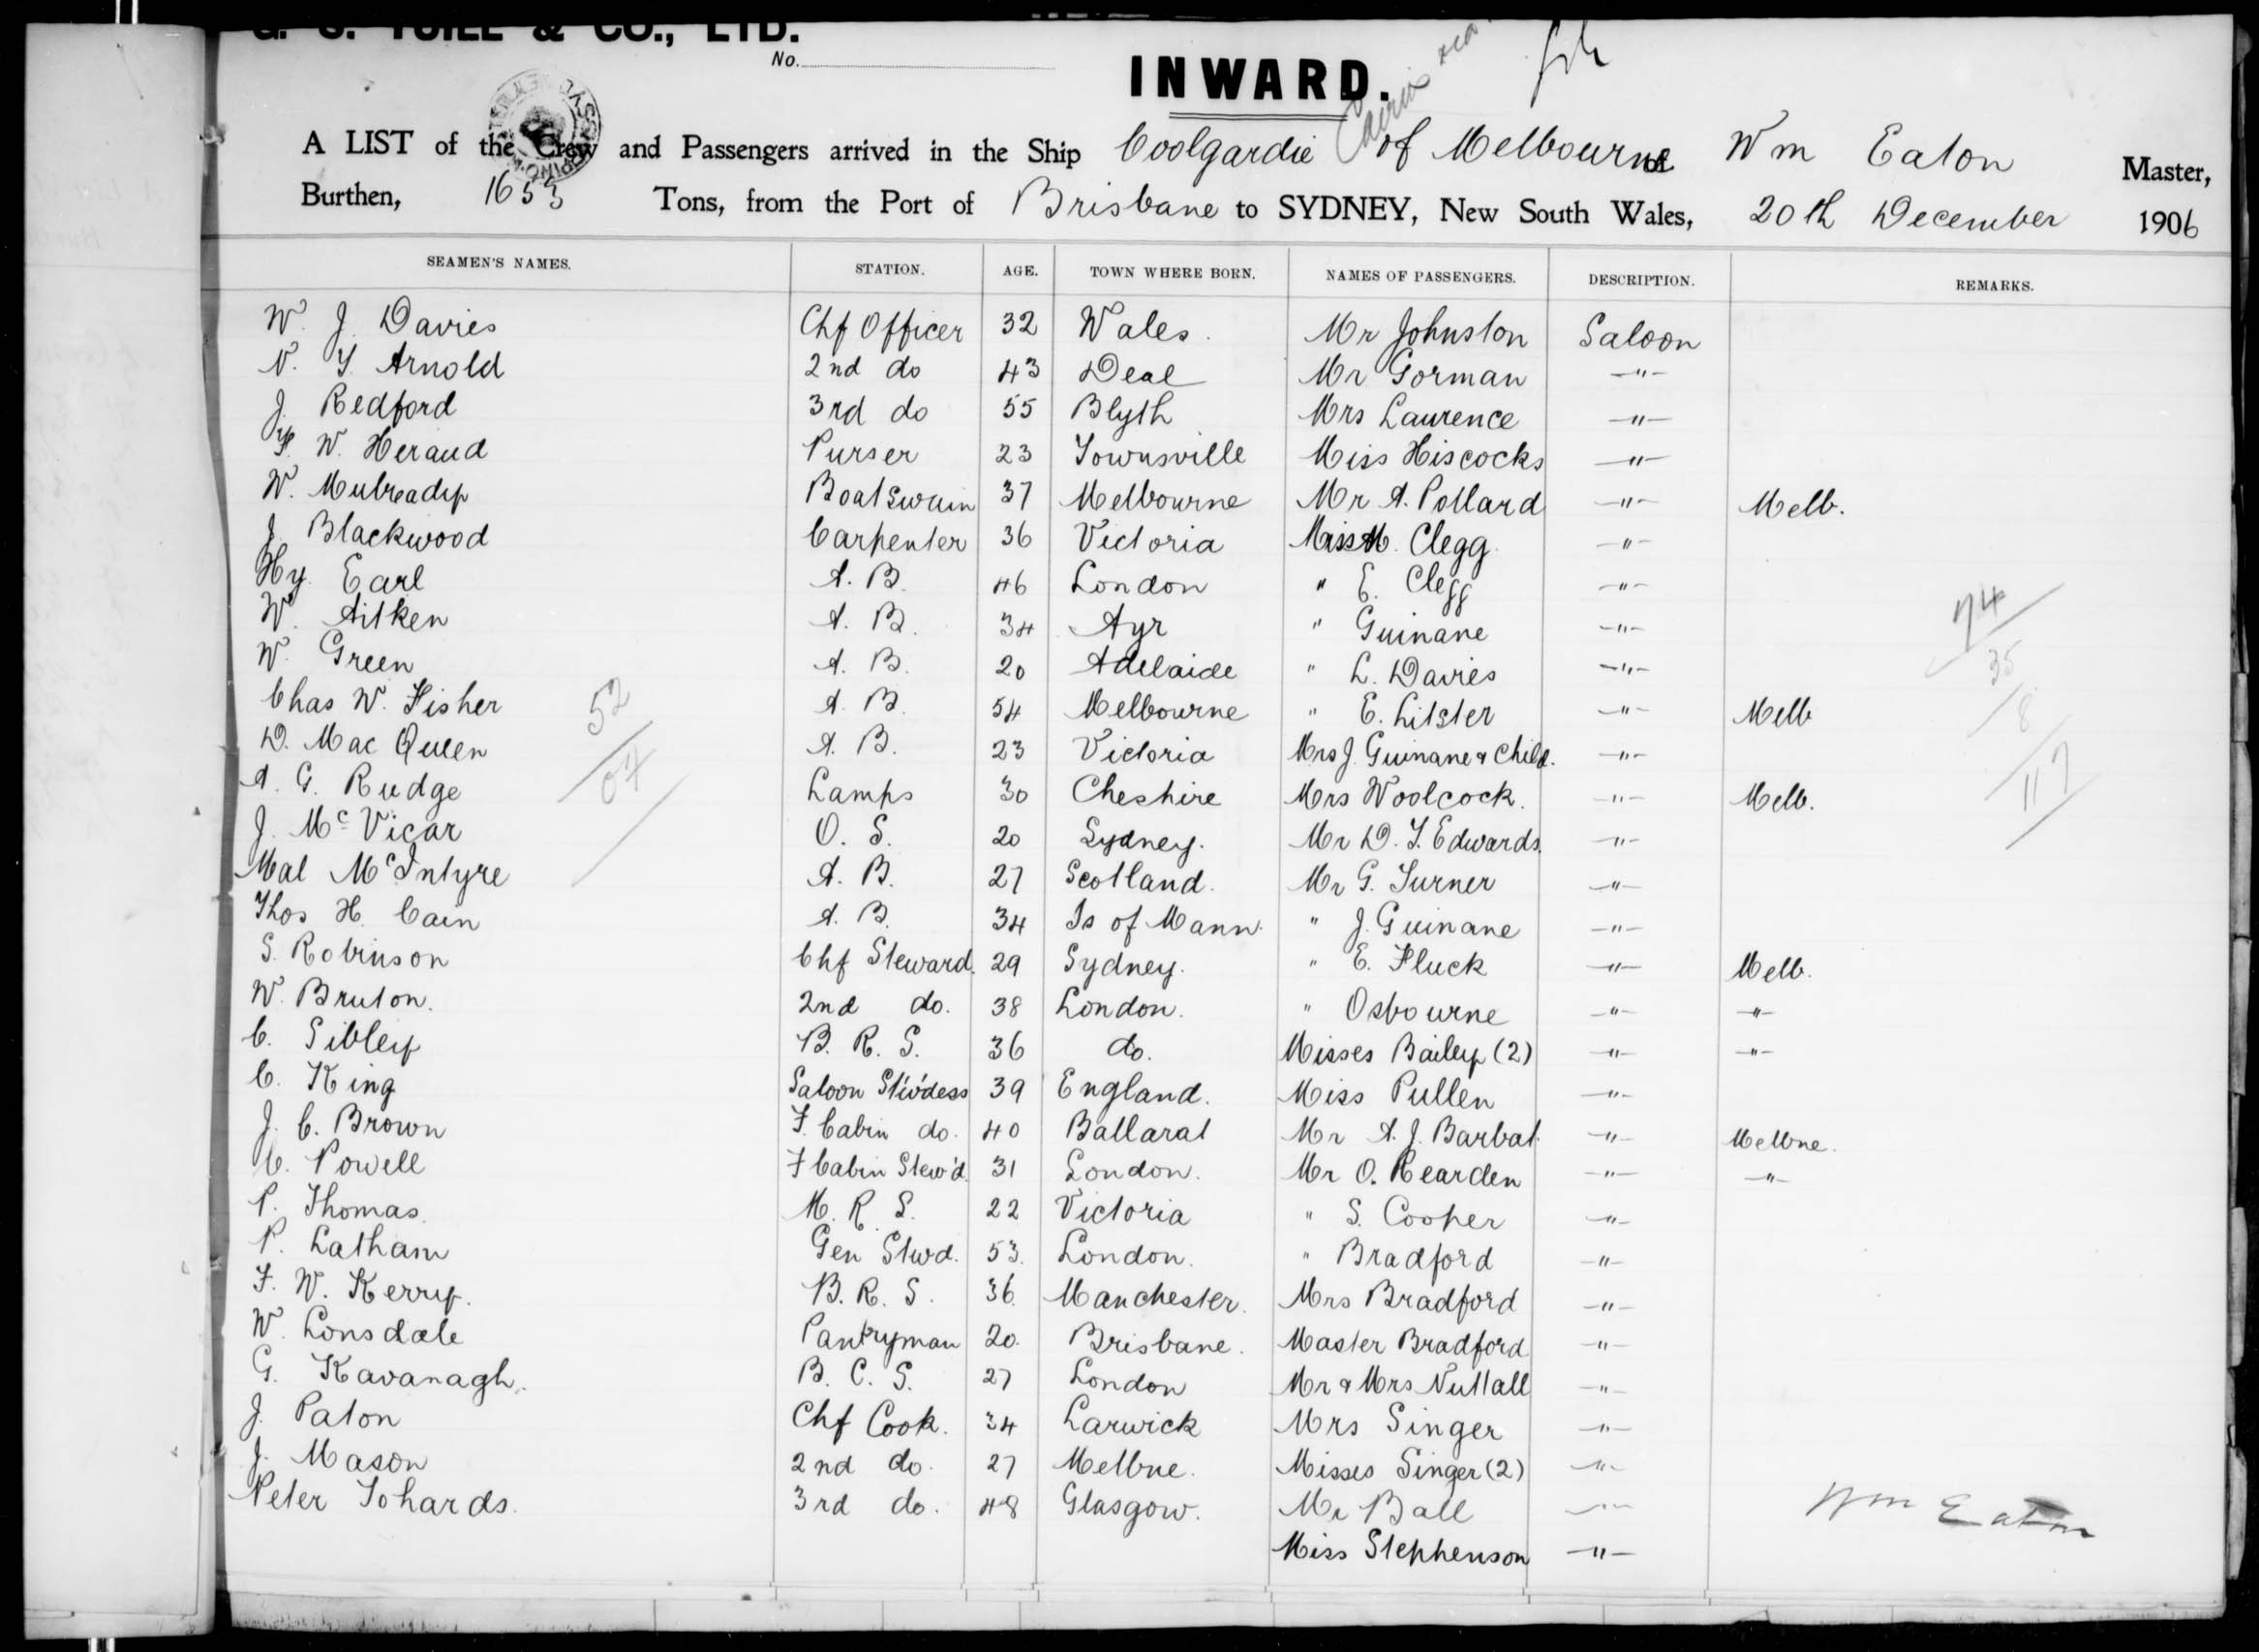 G. S. YUILL & CO., LTD.
No.
INWARD.
A LIST of the Crew and Passengers arrived in the Ship Coolgardie of Melbourne Wm Eaton Master,
Burthen, 1653 Tons, from the Port of Brisbane to SYDNEY, New South Wales, 20th December 1906
SEAMEN'S NAMES. STATION. AGE. TOWN WHERE BORN. NAMES OF PASSENGERS. DESCRIPTION. REMARKS.
W. J. Davies Chf Officer 32 Wales. Mr Johnston Saloon
N. Y. Arnold 2nd do 43 Deal Mr Gorman -"-
J. Redford 3rd do 55 Blyth Mrs Laurence -"-
W. Heraud Purser 23 Townsville Miss Hiscocks -"-
W. Mulready Boatswain 37 Melbourne Mr A. Pollard -"- Melb.
J. Blackwood Carpenter 36 Victoria Miss M. Clegg -"-
Hy. Earl A. B. 46 London " E. Clegg -"-
W. Aitken A. B. 34 Ayr " Guinane -"- 74
W. Green A. B. 20 Adelaide " L. Davies -"- 35
Chas W. Fisher 52 A. B. 54 Melbourne " E. Litster -"- Melb 8
D. Mac Queen A. B. 23 Victoria Mrs J. Guinane & Child. -"-
A. G. Rudge 07 Lamps 30 Cheshire Mrs Woolcock. -"- Melb. 117
J. McVicar O. S. 20 Sydney. Mr D. T. Edwards. -"-
Mal McIntyre A. B. 27 Scotland. Mr G. Turner -"-
Thos H. Cain A. B. 34 Is of Mann. " J. Guinane -"-
S. Robinson Chf Steward. 29 Sydney. " E. Fluck -"- Melb.
W. Bruton. 2nd do. 38 London. " Osbourne -"- -"-
C. Sibley B. R. S. 36 do. Misses Bailey (2) -"- -"-
C. King Saloon St'w'dess 39 England. Miss Pullen -"-
J. C. Brown F. Cabin do. 40 Ballarat Mr A. J. Barbat. -"- Melbne.
C. Powell F Cabin Stew'd. 31 London. Mr O. Rearden -"- -"-
P. Thomas. M. R. S. 22 Victoria " S. Cooper -"-
P. Latham Gen Stwd. 53. London. " Bradford -"-
F. W. Kerry. B. R. S. 36. Manchester. Mrs Bradford -"-
W. Lonsdale Pantryman 20. Brisbane. Master Bradford -"-
G. Kavanagh. B. C. S. 27 London Mr & Mrs Nuttall -"-
J. Paton Chf Cook. 34 Larwick Mrs Singer -"-
J. Mason 2nd do. 27 Melbne. Misses Singer (2) -"-
Peter Tohards. 3rd do. 48 Glasgow. Mr Ball -"- Wm Eaton
Miss Stephenson -"-